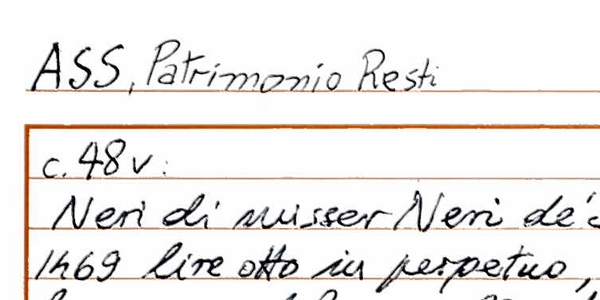 ASS, Patrimonio Resti
c. 48v:
Neri di misser Neri de'
1469 lire otto in perpetuo,